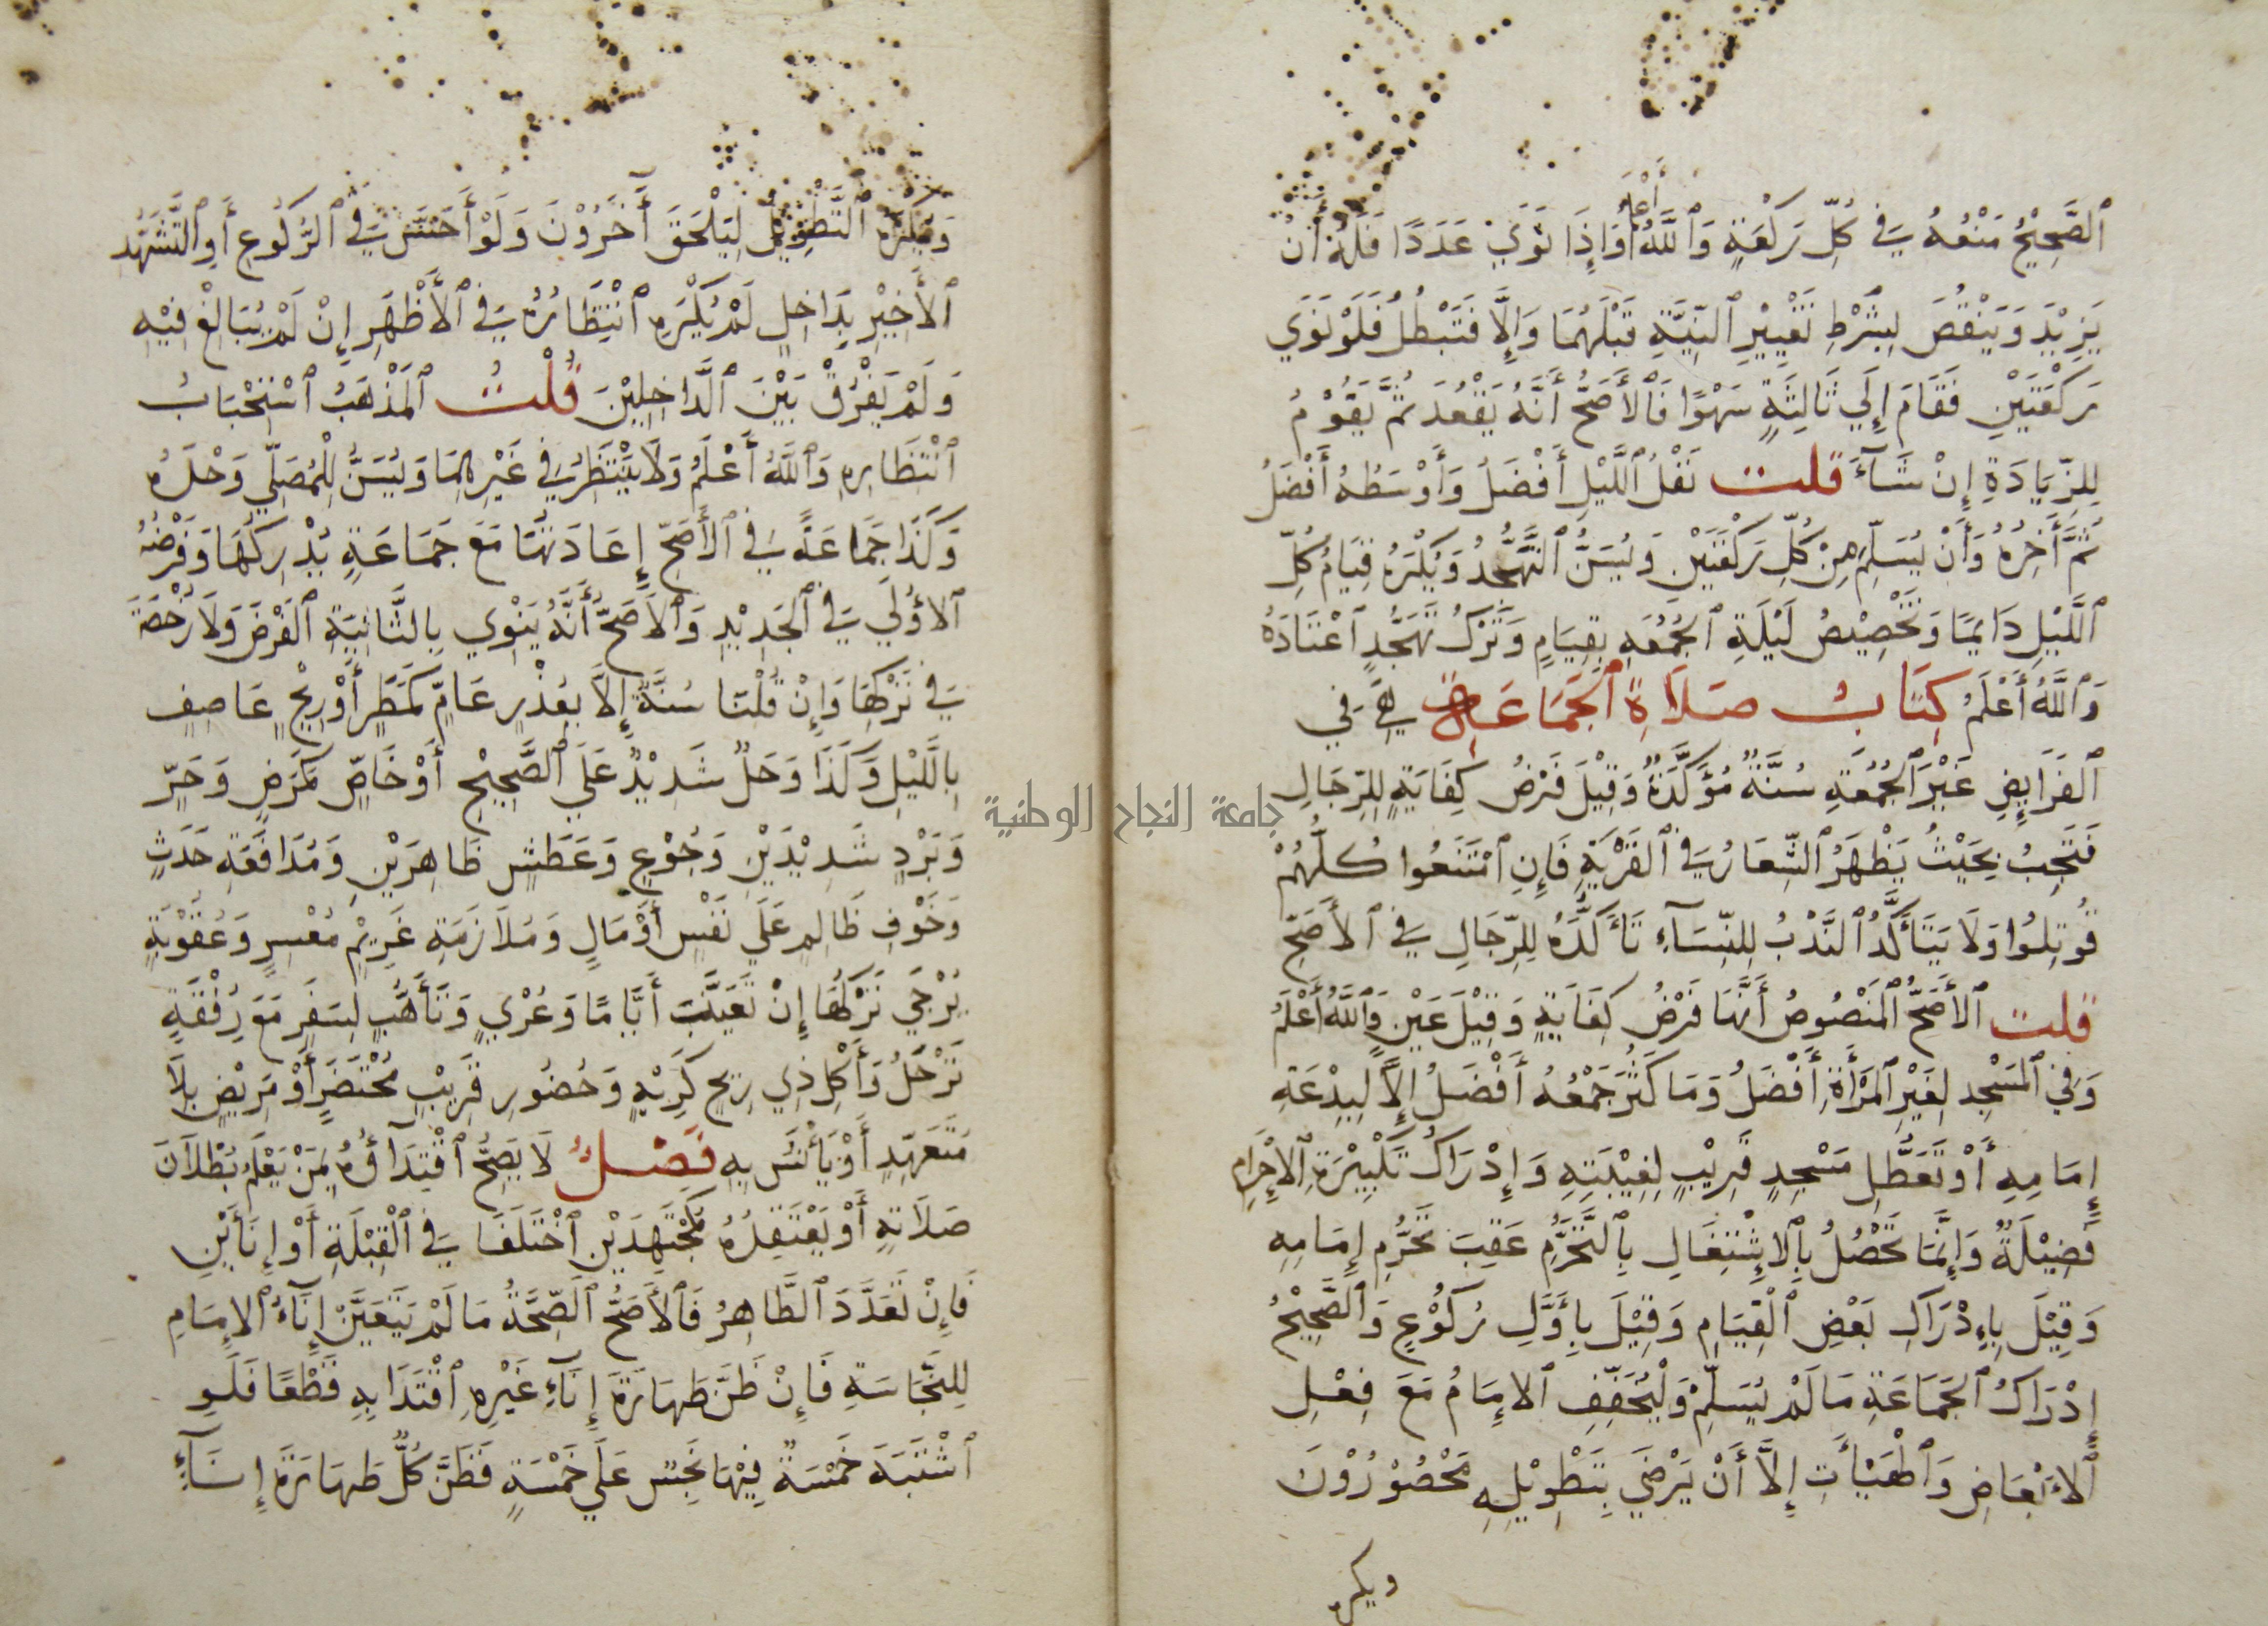 ٱلصَّحِيْحُ مَنْعُهُ فِي كُلِّ رَكْعَةٍ وَٱللَّهُ أَعْلَمُ وَإِذَا نَوَيَ عَدَدًا فَلَهُ أَنْ
يَزِيْدَ وَيَنْقُصَ بِشَرْطِ تَغْيِيْرِ ٱلنِّيَّةِ قَبْلَهُمَا وَإِلَّا فَتَبْطُلُ فَلَوْ نَوَي
رَكْعَتَيْنِ فَقَامَ إِلَي ثَالِثَةٍ سَهْوًا فَٱلْأَصَحُّ أَنَّهُ يَقْعُدَ ثُمَّ يَقُوْمُ
لِلزِّيَادَةِ إِنْ شَآءَ قلت نَفْلُ ٱللَّيْلِ أَفْضَلُ وَأَوْسَطُهُ أَفْضَلُ
ثُمَّ أَخِرُهُ وَأَنْ يُسَلِّمَ مِنْ كُلِّ رَكْعَتَيْنِ وَيُسَنُّ ٱلتَّهَجُّدُ وَيُكْرَهُ قِيَامُ كُلِّ
ٱللَّيْلِ دَايِمًا وَتَخْصِيْصُ لَيْلَةِ ٱلْجُمُعَةِ بِقِيَامٍ وَتَرْكُ تَهَجُّدٍ ٱعْتَادَهُ
وَٱللَّهُ أَعْلَمُ كِتَابُ صَلَاةِ ٱلْجَمَاعَةِ هِيَ فِي
ٱلفَرَايِضِ غَيْرَ ٱلْجُمُعَةِ سُنَّةٌ مُؤَكَّدَةٌ وَقِيْلَ فَرْضُ كِفَايَةٍ لِلرِّجَالِ
فَتَجِبُ بِحَيْثُ يَظْهَرُ ٱلشِّعَارُ فِي ٱلْقَرْيَةِ فَإِنِ ٱمْتَنَعُوا كُلُّهُمْ
قُوتِلُوا وَلَا يَتَأَكَّدُ ٱلنَّدْبُ لِلنِّسَآءِ تَأَكُّدَهُ لِلرِّجَالِ فِي ٱلأَصَحِّ
قلت ٱلأَصَحُّ ٱلْمَنْصُوصُ أَنَّهَا فَرْضُ كِفَايَةٍ وَقِيْلَ عَيْنٍ وَٱللَّهُ أَعْلَمُ
وَفِي ٱلْمَسْجِدِ لِغَيْرِ ٱلْمَرْأَةِ أَفْضَلُ وَمَا كَثُرَ جَمْعُهُ أَفْضَلُ إِلاَّ لِبِدْعَةِ
إِمَامِهِ أَوْ تَعَطُّلِ مَسْجِدٍ قَرِيْبٍ لِغِيْبَتِهِ وَإِدْرَاكُ تَكْبِيْرَةِ ٱلاِحْرَامِ
فَضِيْلَةٌ وَإِنَّمَا تَحْصُلُ بِٱلاِشْتِغَالِ بِٱلتَّحَرُّمِ عَقِبَ تَحَرُّمِ إِمَامِهِ
وَقِيْلَ بِإِدْرَاكِ بَعْضِ ٱلْقِيَامِ وَقِيْلَ بِأَوَّلِ رُكُوْعٍ وَٱلصَّحِيْحُ
إِدْرَاكُ ٱلجَمَاعَةِ مَا لَمْ يُسَلِّمْ وَلْيُخَفِّفِ ٱلإِمَامُ مَعَ فِعْلِ
ٱلأَبْعَاضِ وَٱلْهَيْأَتِ إِلاَّ أَنْ يَرْضَي بِتَطْوِيْلِهِ مَحْصُوْرُوْنَ
ويكره
وَيُكْرَهُ ٱلتَّطْوِيْلُ لِيَلْحَقَ آخَرُوْنَ وَلَوْ أَحَسَّ فِي ٱلرُّكُوعِ أَوِ ٱلتَّشَهُّدِ
ٱلأَخِيْرِ بِدَاخِلٍ لَمْ يُكْرَهِ ٱنْتِظَارُهُ فِي ٱلأَظْهَرِ إِنْ لَمْ يُبَالِغْ فِيْهِ
وَلَمْ يَفْرُقْ بَيْنَ ٱلدَّاخِلِيْنَ قُلْتُ ٱلْمَذْهَبُ ٱسْتِحْبَابُ
ٱنْتِظَارِهِ وَٱللَّهُ أَعْلَمُ وَلَا يَنْتَظِرُ فِي غَيْرِهِمَا وَيُسَنُّ لِلْمُصَلِّي وَحْدَهُ
وَكَذَا جَمَاعَةً فِي ٱلأَصَحِّ إِعَادَتُهَا مَعَ جَمَاعَةٍ يُدْرِكُهَا وَفَرْضُهُ
ٱلأُوْلَي فِي ٱلْجَدِيْدِ وَٱلْأَصَحُّ أَنَّهُ يَنْوِي بِالثَّانِيَةِ ٱلْفَرْضَ وَلَا رُخْصَةَ
فِي تَرْكِهَا وَإِنْ قُلْنَا سُنَّةٌ إِلاَّ بِعُذْرٍ عَامٍّ كَمَطَرٍ أَوْ رِيْحٍ عَاصِفٍ
بِاللَّيْلِ وَكَذَا وَحَلٌ شَدِيْدٌ عَلَي ٱلصَّحِيْحِ أَوْ خَاصٍّ كَمَرَضٍ وَحَرٍّ
وَبَرْدٍ شَدِيْدَيْنِ وَجُوْعٍ وَعَطَشٍ ظَاهِرَيْنِ وَمُدَافَعَةِ حَدَثٍ
وَخَوْفِ ظَالِمٍ عَلَي نَفْسٍ أَوْ مَالٍ وَمُلَازَمَةِ غَرِيْمٍ مُعْسِرٍ وَعُقُوْبَةٍ
يُرْجَي تَرْكُهَا إِنْ تَغَيَّبَ أَيَّامًا وَعُرْيٍ وَتَأَهُّبٍ لِسَفَرٍ مَعَ رُفْقَةٍ
تَرْحَلُ وَأَكْلِ ذِي رِيْحٍ كَرِيْهٍ وَحُضُورِ قَرِيْبٍ مُحْتَضَرٍ أَوْ مَرِيْضٍ بِلاَ
مُتَعَهِّدٍ أَوْ يَأْنَسُ بِهِ فَصْلٌ لَا يَصِحُّ ٱقْتِدَآؤُهُ بِمَنْ يَعْلَمُ بُطْلَانَ
صَلَاتِهِ أَوْ يَعْتَقِدُهُ كَمُجْتَهِدَيْنِ ٱخْتَلَفَا فِي ٱلْقِبْلَةِ أَوْ إِنَأَيْنِ
فَإِنْ تَعَدَّدَ ٱلطَّاهِرُ فَٱلأَصَحُّ ٱلصِّحَّةُ مَا لَمْ يَتَعَيَّنْ إِنَآءُ ٱلإِمَامِ
لِلنَّجَاسَةِ فَإِنْ ظَنَّ طَهَارَةَ إِنَآءِ غَيْرِهِ ٱقْتَدَا بِهِ قَطْعًا فَلَوِ
ٱشْتَبَهَ خَمْسَةٌ فِيْهَا نَجِسٌ عَلَي خَمْسَةٍ فَظَنَّ كُلٌّ طَهَارَةَ إِنَآءٍ
جامعة النجاح الوطنية